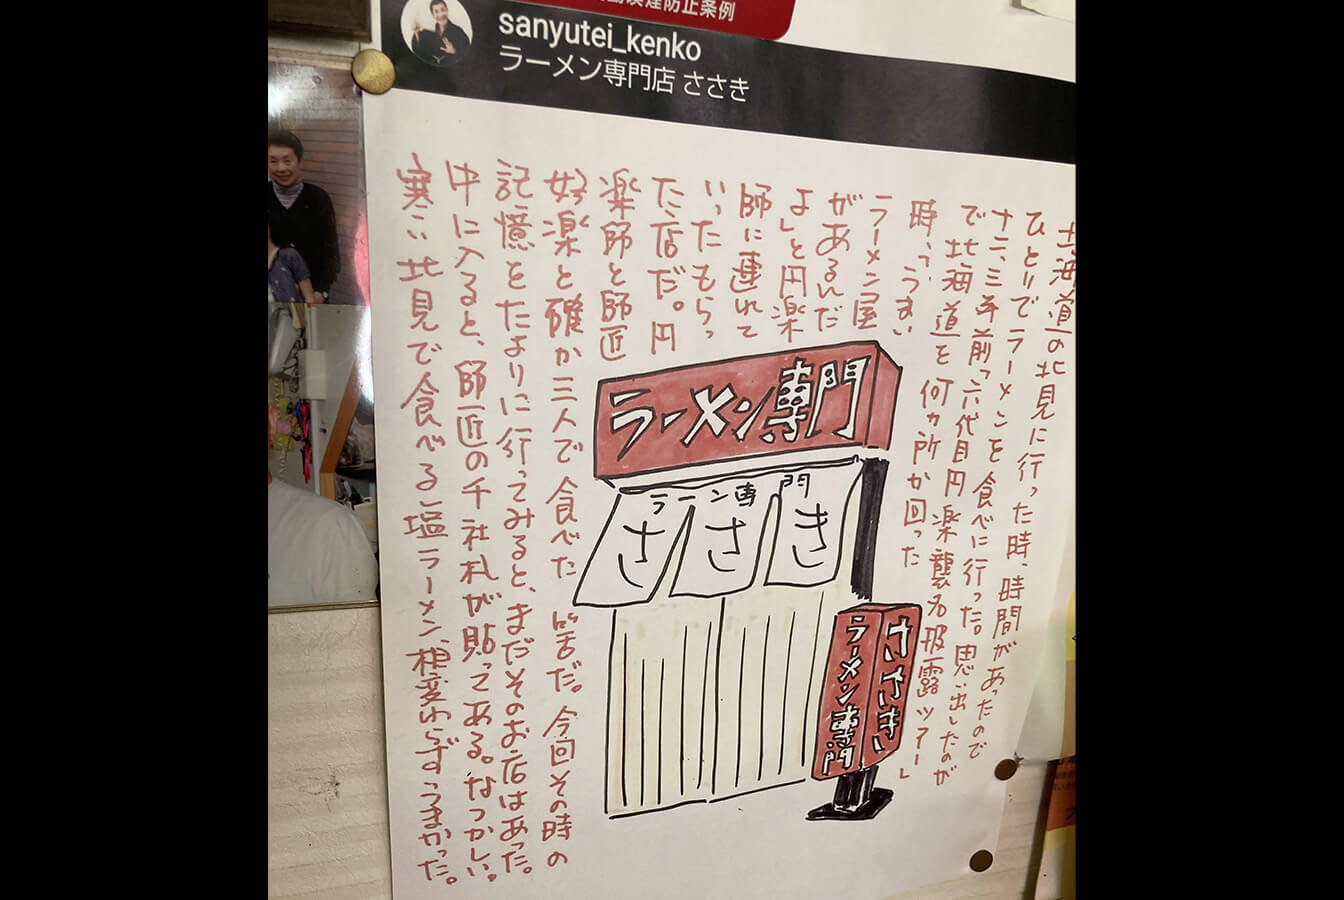 煙防止条例
sanyutei_kenko
ラーメン専門店 ささき
北海道の北見に行った時、時間があったので
ひとりでラーメンを食べに行った。思い出したのが
十二、三年前「六代目円楽襲名披露ツアー」
で北海道を何ヵ所か回った
時、「うまい
ラーメン屋
があるんだ
よ」と円楽
師に連れて
いったもらっ
た、店だ。円
楽師と師匠
好楽と確か三人で食べた筈だ。今回その時の
記憶をたよりに行ってみると、まだそのお店はあった。
中に入ると、師匠の千社札が貼ってある。なつかしい。
寒い北見で食べる塩ラーメン、相変わらずうまかった。
ラーメン専門
ラーン専門
ささき
ささき
ラーメン専門